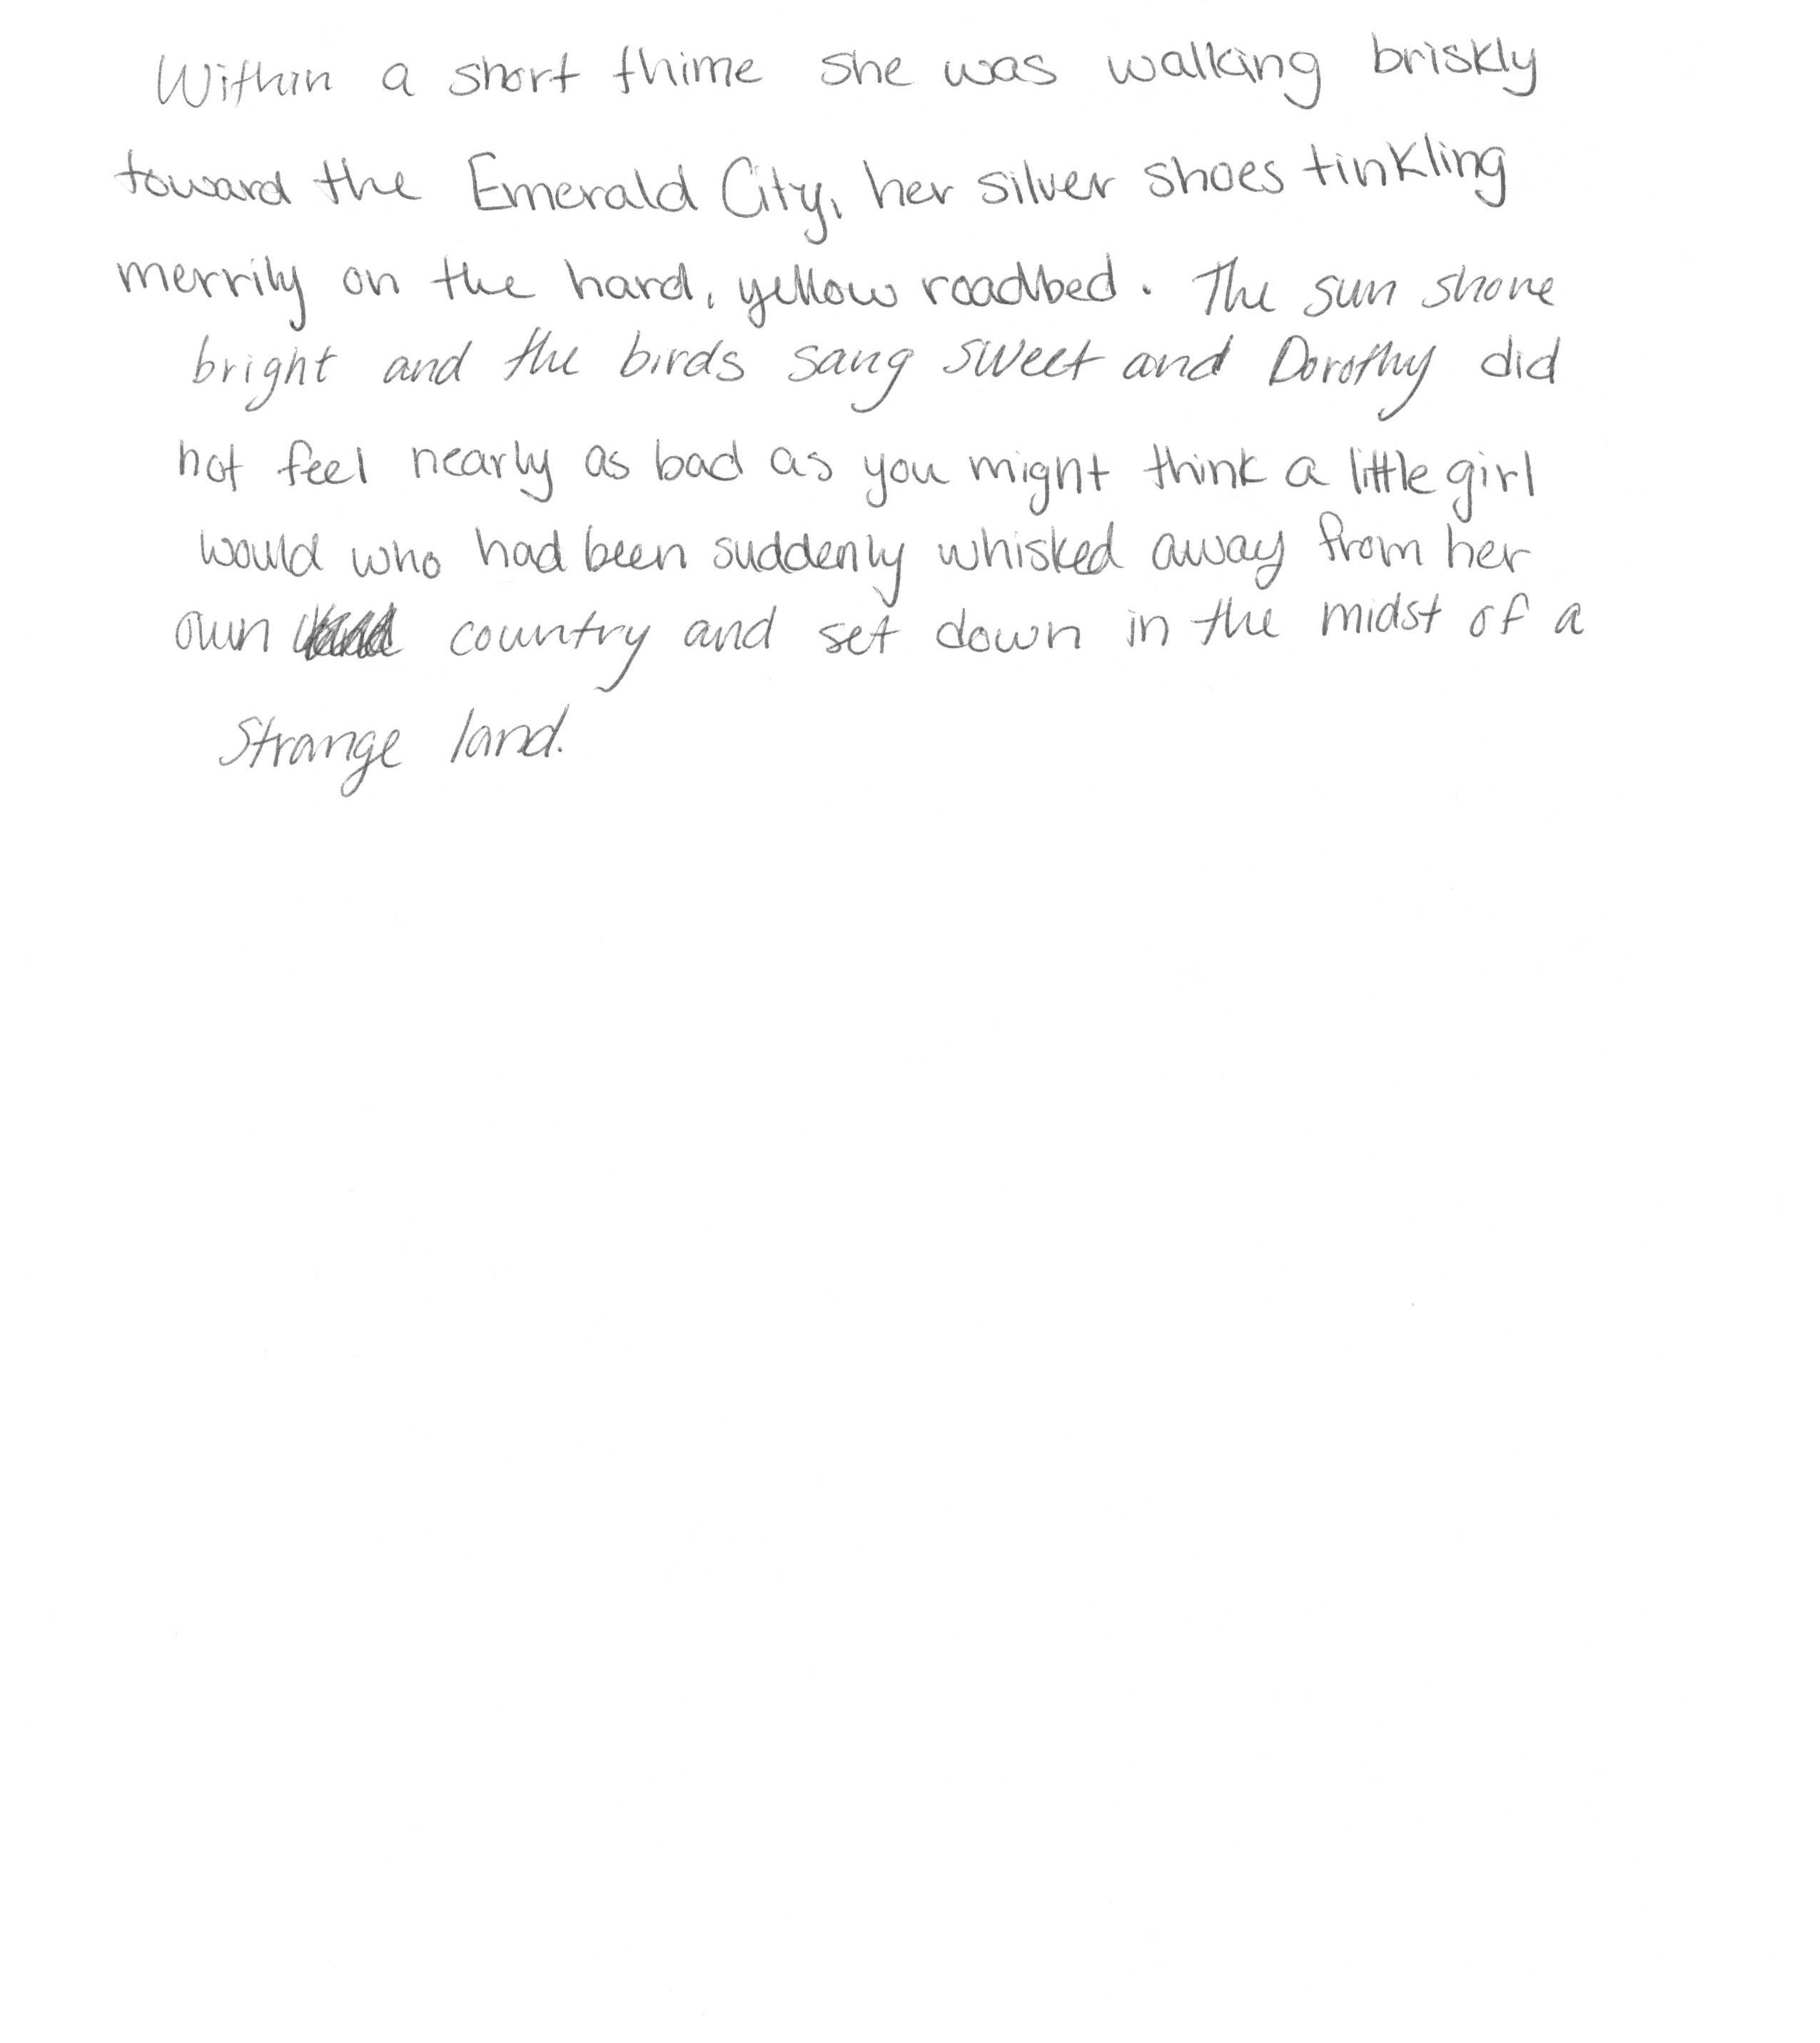 Within a short thime she was walking briskly
toward the Emerald City, her silver shoes tinkling
merrily on the hard, yellow roadbed. The sun shone
bright and the birds sang sweet and Dorothy did
not feel nearly as bad as you might think a little girl
would who had been suddenly whisked away from her
own country and set down in the midst of a
strange land.